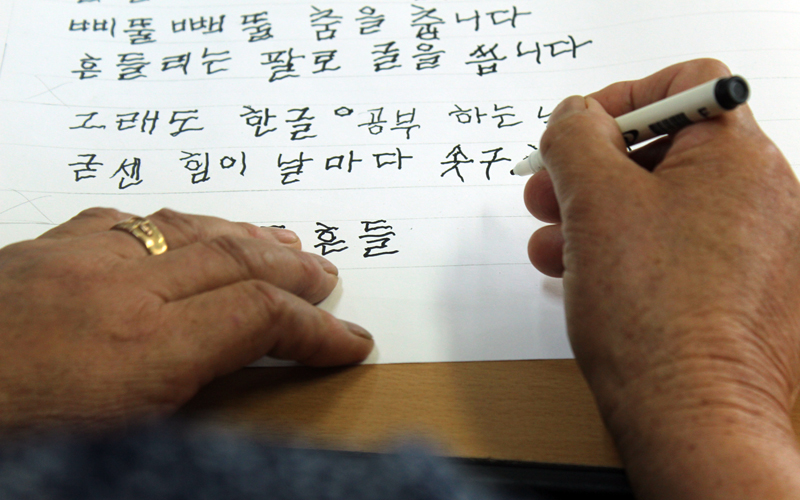 삐뚤 빼뚤 춤을 춥니다
흔들리는 팔로 글을 씁니다
그래도 한글 공부 하는
굳센 힘이 날마다 솟구
흔들